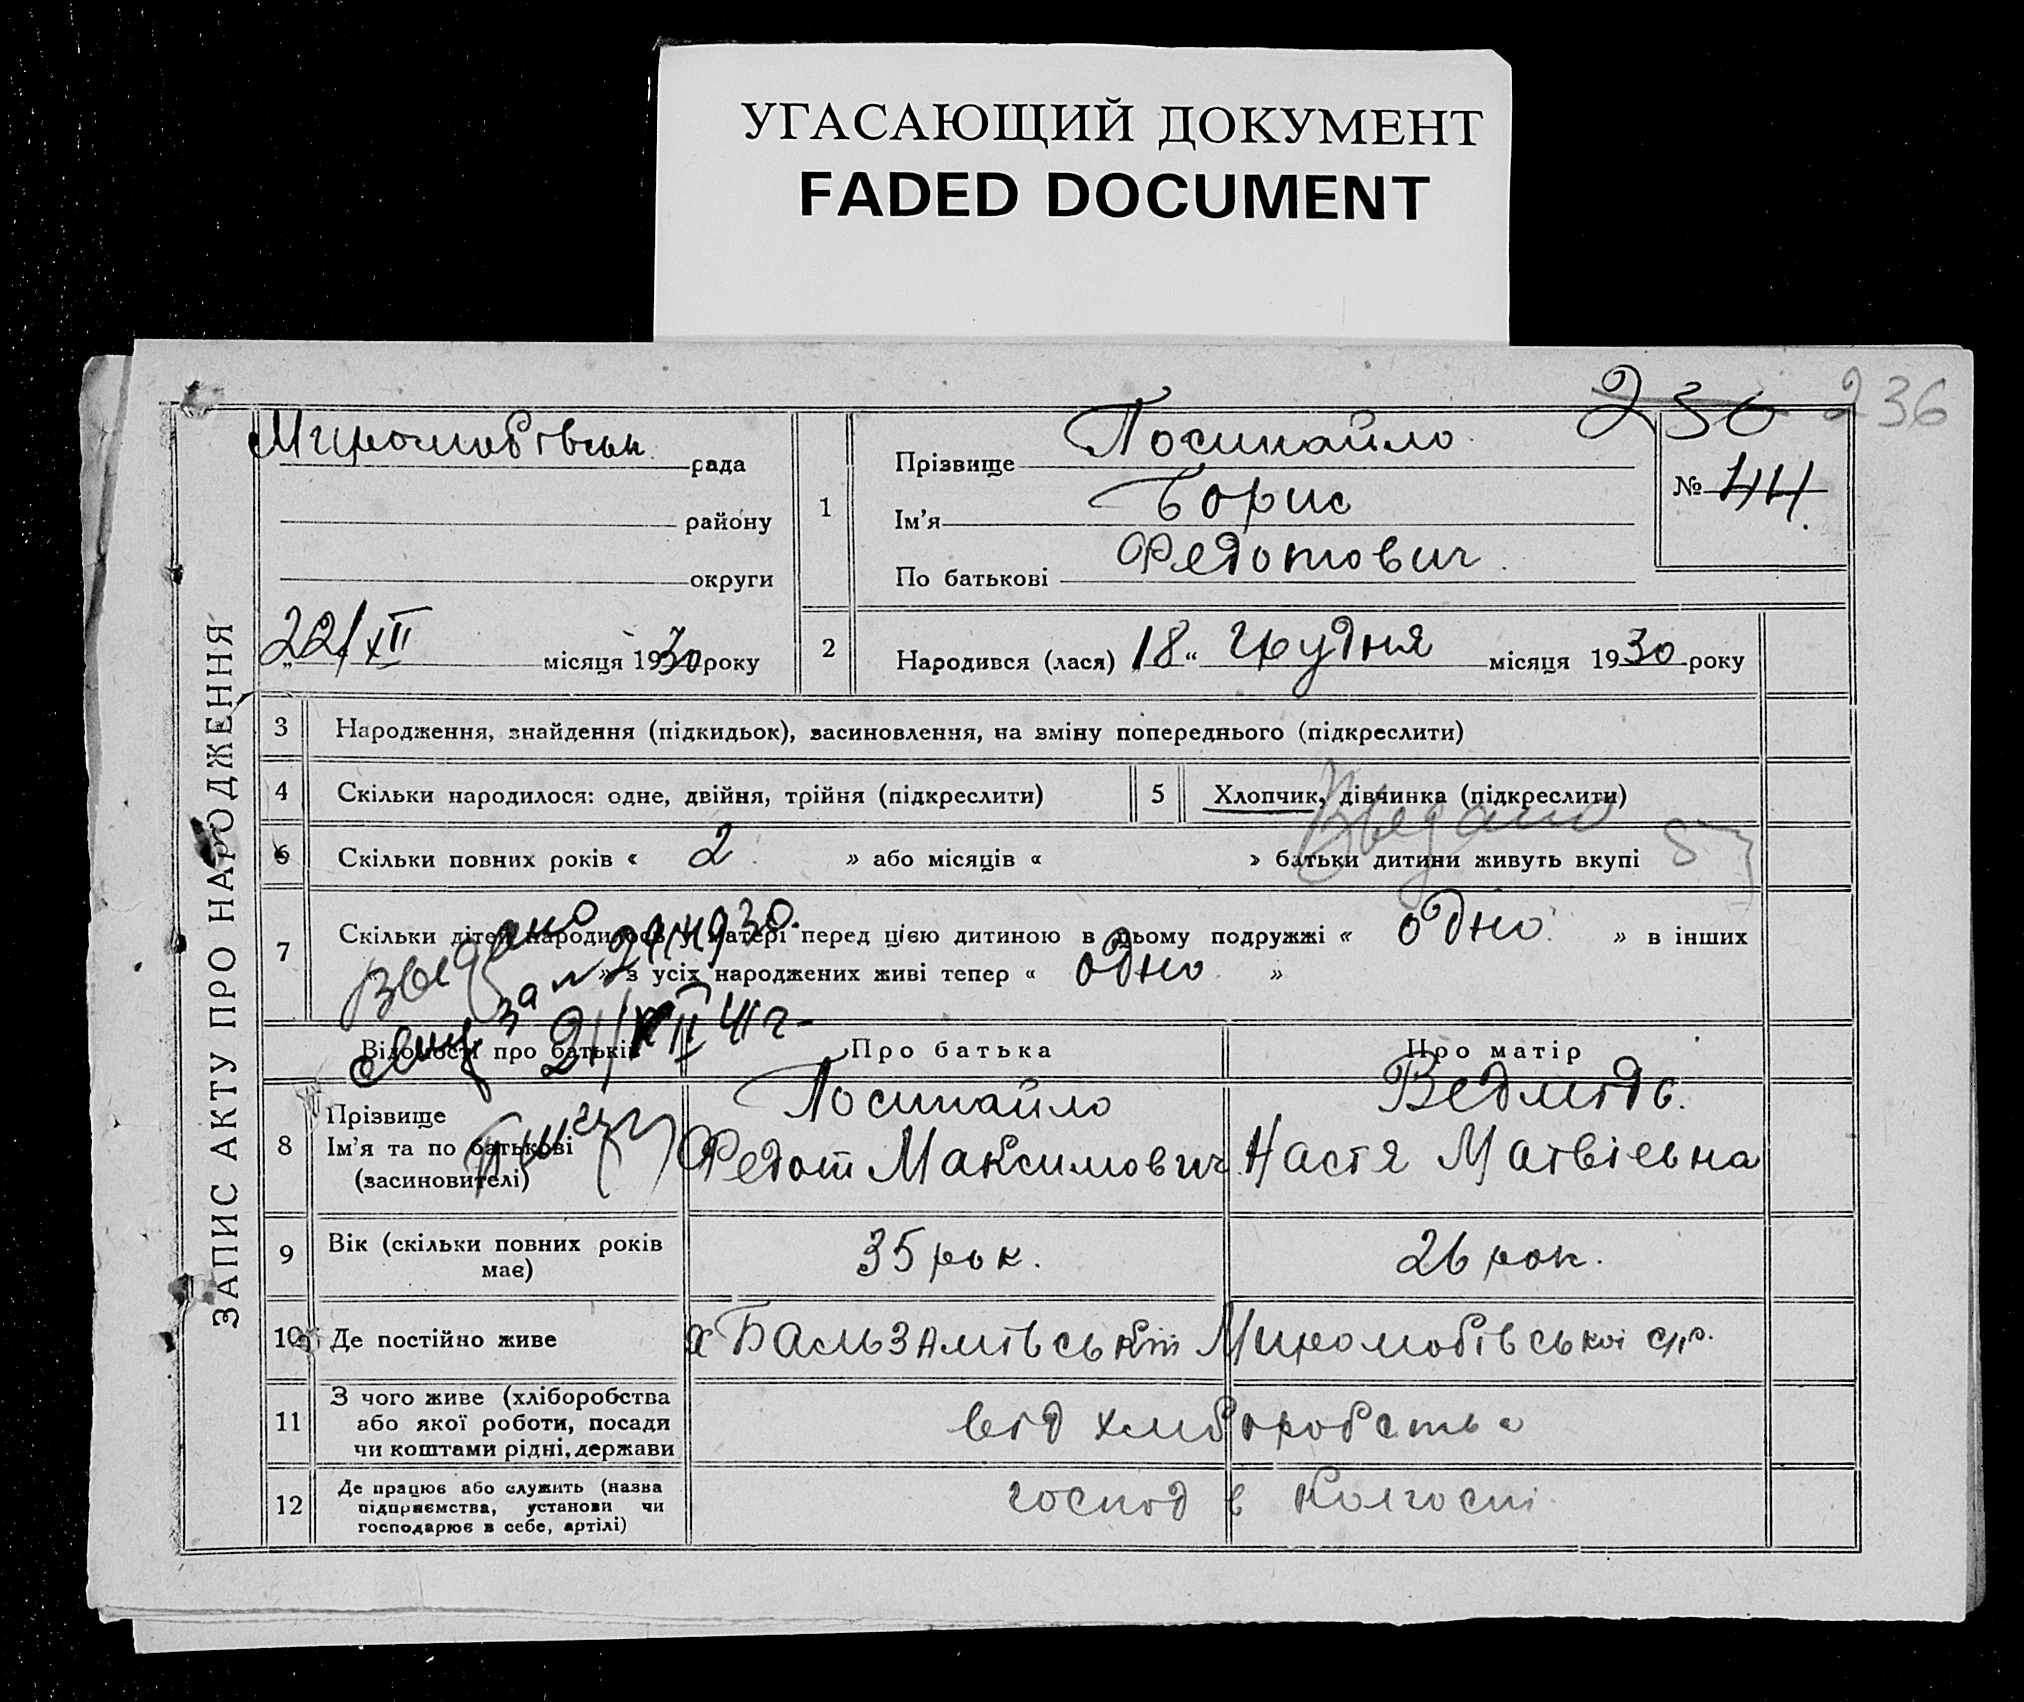 УГАСАЮЩИЙ ДОКУМЕНТ
FADED DOCUMENT
236
ЗАПИС АКТУ ПРО НАРОДЖЕННЯ
рада
району
округи
"22/XII місяця 1930 року
1
Прізвище Посипайло
Ім'я Борис
По батькові Федотович
№ 44
2
Народився (лася) 18 " Грудня місяця 1930 року
3
Народження, знайдення (підкидьок), засиновлення, на зміну попереднього (підкреслити)
4
Скільки народилося: одне, двійня, трійня (підкреслити)
5
Хлопчик, дівчинка (підкреслити)
6
Скільки повних років « 2 » або місяців « » батьки дитини живуть вкупі
7
Скільки дітей народилося у матері перед цією дитиною в цьому подружжі « одно » в інших
« » з усіх народжених живі тепер « одно »
Відомості про батьків
Про батька
Про матір
8
Прізвище
Ім'я та по батькові
(засиновителі)
Посипайло
Федот Максимович
Ведмідь
Настя Матвієвна
9
Вік (скільки повних років
має)
35 рок.
26 рок.
10
Де постійно живе
11
З чого живе (хліборобства
або якої роботи, посади
чи коштами рідні, держави
від хліборобства
12
Де працює або служить (назва
підприємства, установи чи
господарює в себе, артілі)
господ в колгоспі